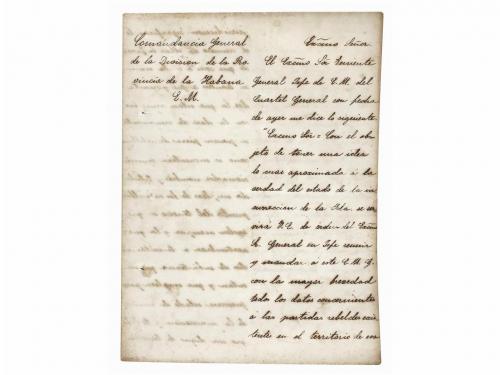 Comandancia General
de la Division de la Pro
vincia de la Habana
E. M.
Excmo Señor
El Excmo Sor Teniente
General Jefe de E. M. del
Cuartel General con fecha
de ayer me dice lo siguiente
"Excmo Sor = Con el ob
jeto de tener una idea
lo mas aproximada á la
verdad del estado de la in
surreccion de la Isla, se ser
virá V. E. de orden del Excmo
Sr. General en Jefe reunir
y mandar á este E. M. G.
con la mayor brevedad
todos los datos concernientes
á las partidas rebeldes exis
tentes en el territorio de esa